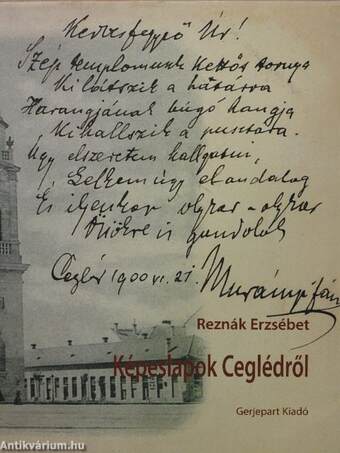 Kedves fegyző Úr!
Szép templomunk kettős tornya
Kilátszik a határra
Harangjának búgó hangja
Kihallszik a pusztára.
Úgy elszeretem hallgatni,
Lelkem úgy elandalog
És ilyenkor olykor-olykor
Önökre is gondolok
Cegléd 1900 VI. 21.
Reznák Erzsébet
Képeslapok Ceglédről
Gerjepart Kiadó
Antikvárium.hu